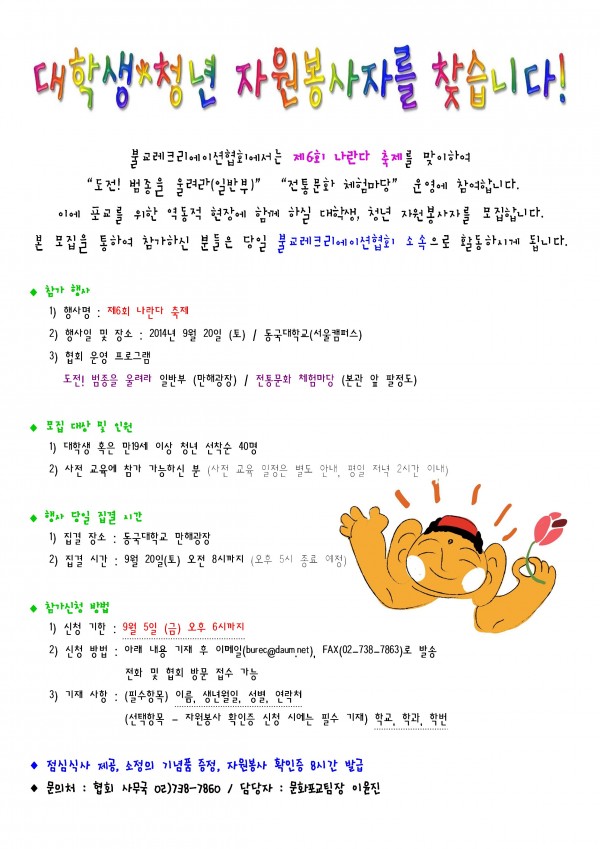 대학생*청년 자원봉사자를 찾습니다!
불교레크리에이션협회에서는 제6회 나란다 축제를 맞이하여
“도전! 범종을 울려라(일반부)” “전통문화 체험마당” 운영에 참여합니다.
이에 포교를 위한 역동적 현장에 함께 하실 대학생, 청년 자원봉사자를 모집합니다.
본 모집을 통하여 참가하신 분들은 당일 불교레크리에이션협회 소속으로 활동하시게 됩니다.
◆ 참가 행사
1) 행사명 : 제6회 나란다 축제
2) 행사일 및 장소 : 2014년 9월 20일 (토) / 동국대학교(서울캠퍼스)
3) 협회 운영 프로그램
도전! 범종을 울려라 일반부 (만해광장) / 전통문화 체험마당 (본관 앞 팔정도)
◆ 모집 대상 및 인원
1) 대학생 혹은 만19세 이상 청년 선착순 40명
2) 사전 교육에 참가 가능하신 분 (사전 교육 일정은 별도 안내, 평일 저녁 2시간 이내)
◆ 행사 당일 집결 시간
1) 집결 장소 : 동국대학교 만해광장
2) 집결 시간 : 9월 20일(토) 오전 8시까지 (오후 5시 종료 예정)
◆ 참가신청 방법
1) 신청 기한 : 9월 5일 (금) 오후 6시까지
2) 신청 방법 : 아래 내용 기재 후 이메일(burec@daum.net), FAX(02-738-7863)로 발송
전화 및 협회 방문 접수 가능
3) 기재 사항 : (필수항목) 이름, 생년월일, 성별, 연락처
(선택항목 - 자원봉사 확인증 신청 시에는 필수 기재) 학교, 학과, 학번
◆ 점심식사 제공, 소정의 기념품 증정, 자원봉사 확인증 8시간 발급
◆ 문의처 : 협회 사무국 02)738-7860 / 담당자 : 문화포교팀장 이윤진